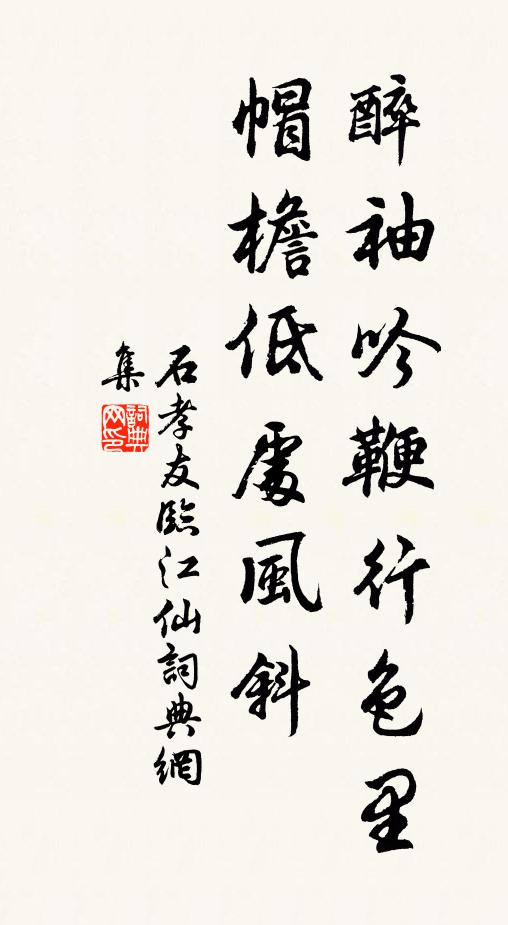 醉袖吟鞭行色里
帽檐低處風斜
石孝友臨江仙詞典網
集
詞典网印